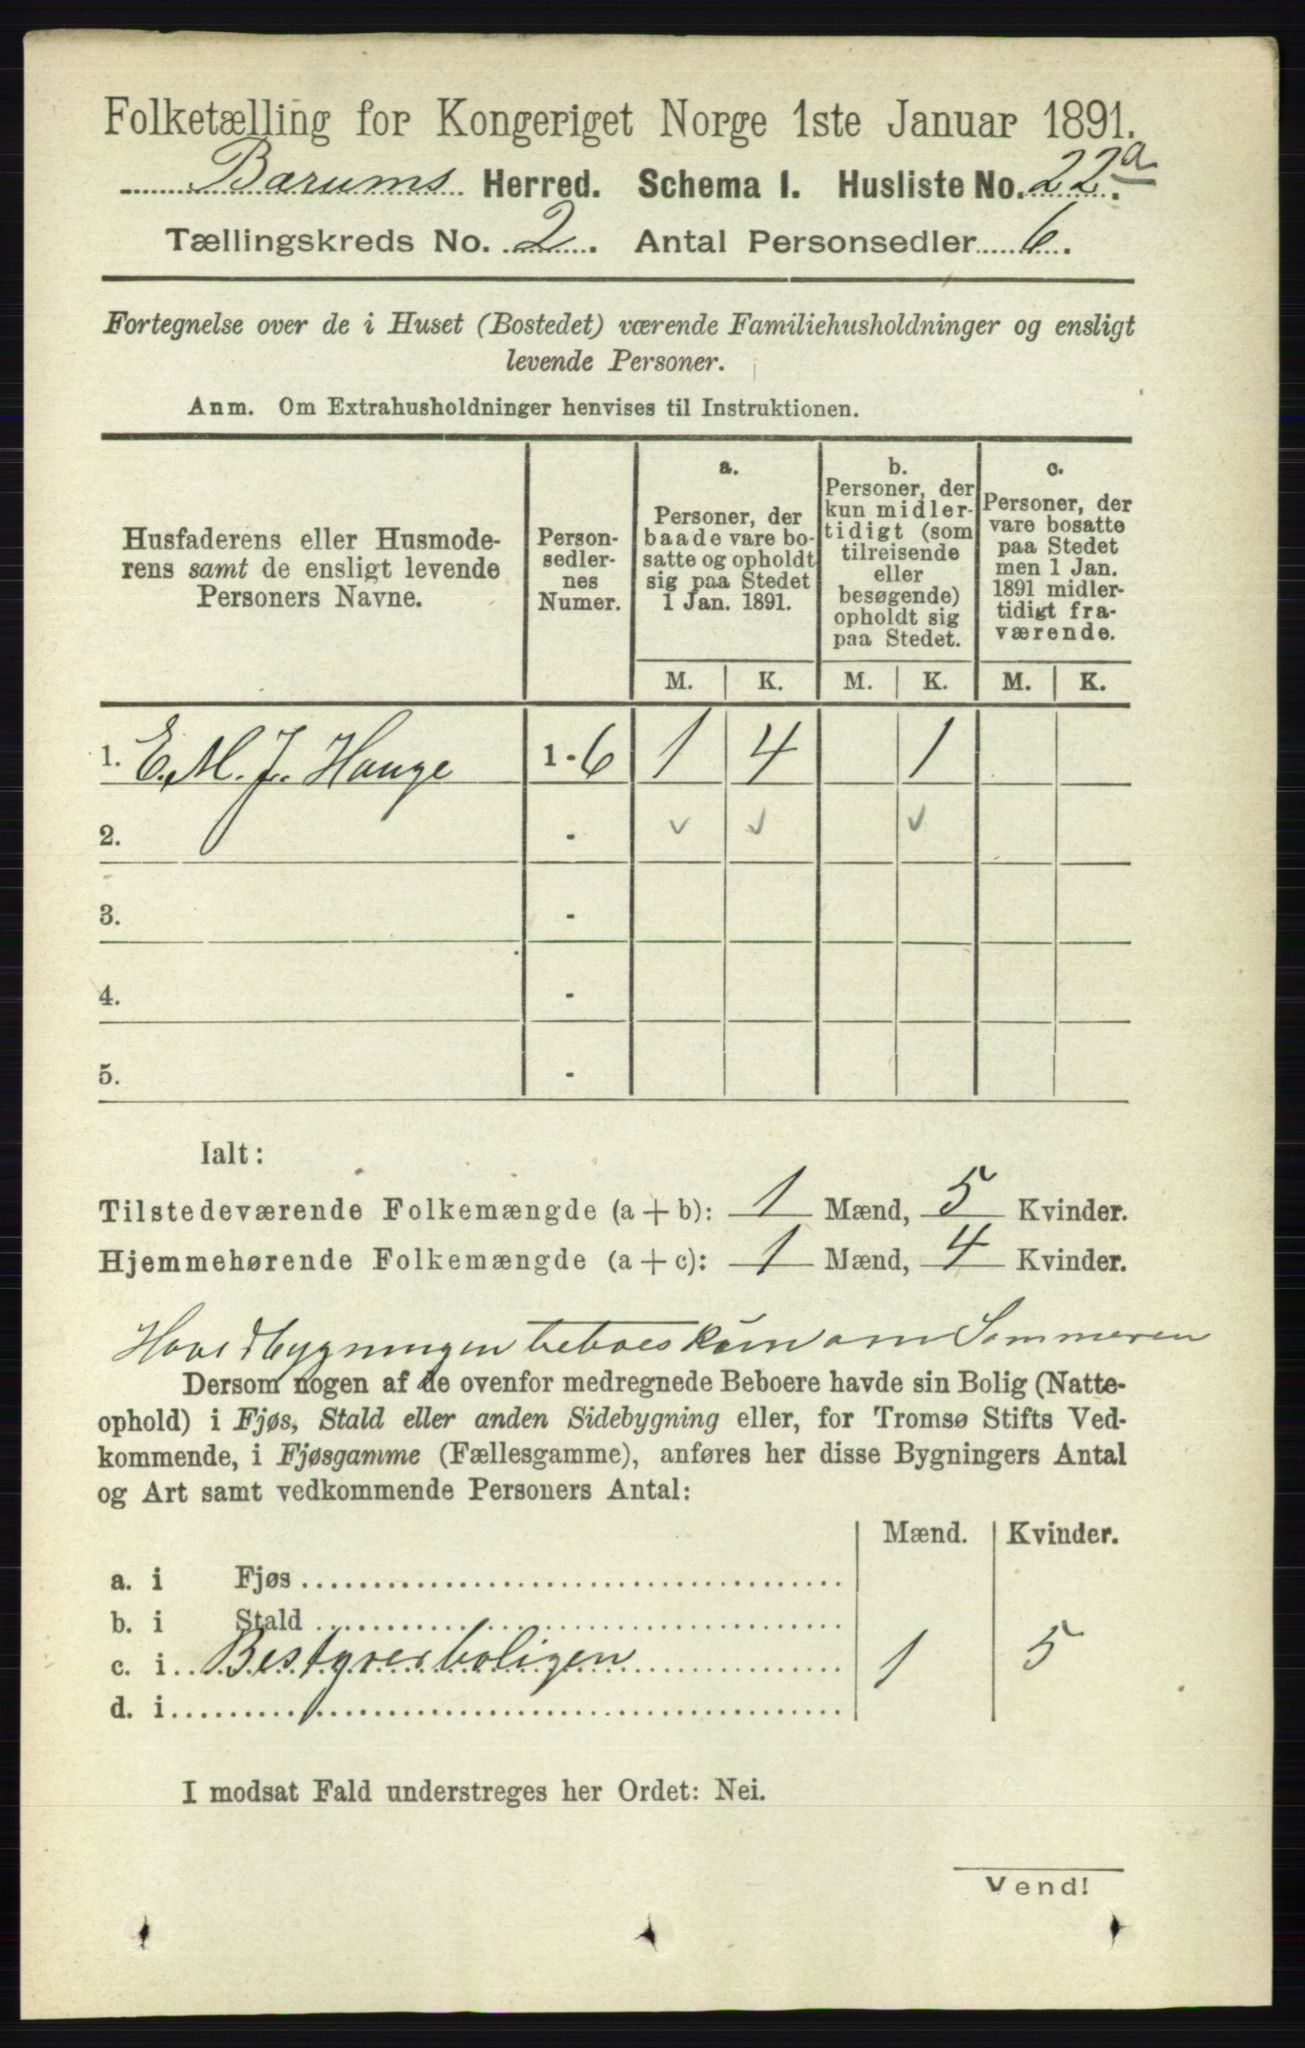 Folketælling for Kongeriget Norge 1ste Januar 1891.
Bærums Herred. Schema I. Husliste No. 22a.
Tællingskreds No. 2. Antal Personsedler 6.
Fortegnelse over de i Huset (Bostedet) værende Familiehusholdninger og ensligt
levende Personer.
Anm. Om Extrahusholdninger henvises til Instruktionen.
Husfaderens eller Husmode-
rens samt de ensligt levende
Personers Navne.
Person-
sedler-
nes
Numer.
a.
Personer, der
baade vare bo-
satte og opholdt
sig paa Stedet
1 Jan. 1891.
b.
Personer, der
kun midler-
tidigt (som
tilreisende
eller
besøgende)
opholdt sig
paa Stedet.
c.
Personer, der
vare bosatte
paa Stedet
men 1 Jan.
1891 midler-
tidigt fra-
værende.
M. K. M. K. M. K.
1. E. M. J. Hauge 1-6 1 4 1
2. - ✓ ✓ ✓
3. -
4. -
5. -
Ialt:
Tilstedeværende Folkemængde (a + b): 1 Mænd, 5 Kvinder.
Hjemmehørende Folkemængde (a + c): 1 Mænd, 4 Kvinder.
Hovedbygningen beboes kun om Sommeren
Dersom nogen af de ovenfor medregnede Beboere havde sin Bolig (Natte-
ophold) i Fjøs, Stald eller anden Sidebygning eller, for Tromsø Stifts Ved-
kommende, i Fjøsgamme (Fællesgamme), anføres her disse Bygningers Antal
og Art samt vedkommende Personers Antal:
Mænd. Kvinder.
a. i Fjøs
b. i Stald
c. i Bestyrerboligen 1 5
d. i
I modsat Fald understreges her Ordet: Nei.
Vend!